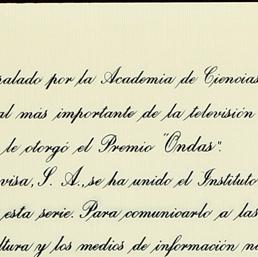 ralado por la Academia de Ciencias
al más importante de la televisión
le otorgó el Premio "Ondas".
visa, S. A., se ha unido el Instituto
esta serie. Para comunicarlo a las
ltura y los medios de información n